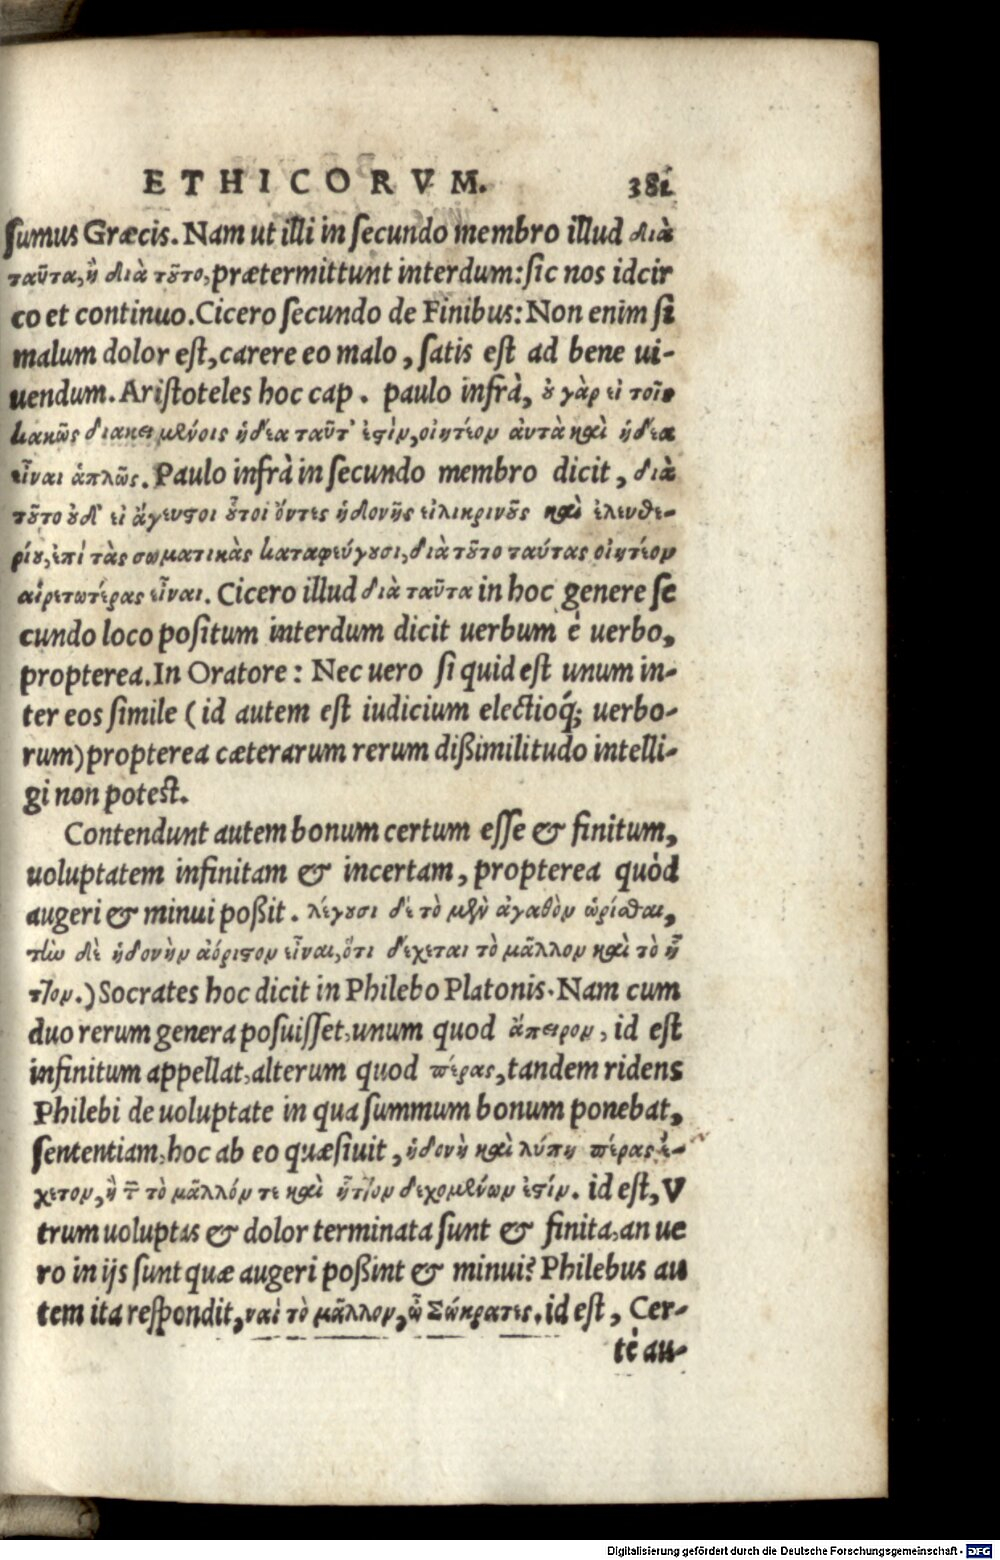 ETHICORVM. 381
sumus Græcis. Nam ut illi in secundo membro illud διὰ
ταῦτα, ἢ διὰ τȣ̃το, prætermittunt interdum: sic nos idcir
co et continuo. Cicero secundo de Finibus: Non enim si
malum dolor est, carere eo malo, satis est ad bene ui-
uendum. Aristoteles hoc cap. paulo infrà, ȣ̓ γὰρ εἰ τοῖς
κακῶς διακειμένοις ἡδέα ταῦτ’ ἐστὶν, οἰητέον αὐτὰ καὶ ἡδέα
εἶναι ἁπλῶς. Paulo infrà in secundo membro dicit, διὰ
τȣ̃το ȣ̓δ’ εἰ ἄγευστοι ȣ̔͂τοι ὄντες ἡδονῆς εἰλικρινȣ̃ς καὶ ἐλευθε-
ρίȣ, ἐπὶ τὰς σωματικὰς καταφεύγȣσι, διὰ τȣ̃το ταύτας οἰητέον
αἱρετωτέρας εἶναι. Cicero illud διὰ ταῦτα in hoc genere se
cundo loco positum interdum dicit uerbum è uerbo,
propterea. In Oratore: Nec uero si quid est unum in-
ter eos simile (id autem est iudicium electioq́; uerbo-
rum) propterea cæterarum rerum dißimilitudo intelli-
gi non potest.
Contendunt autem bonum certum esse & finitum,
uoluptatem infinitam & incertam, propterea quòd
augeri & minui poßit. λέγȣσι δὲ τὸ μὲν ἀγαθὸν ὡρίσθαι,
τὴν δὲ ἡδονὴν ἀόριστον εἶναι, ὅτι δέχεται τὸ μᾶλλον καὶ τὸ ἧτ
τον.) Socrates hoc dicit in Philebo Platonis. Nam cum
duo rerum genera posuisset, unum quod ἄπειρον, id est
infinitum appellat, alterum quod πέρας, tandem ridens
Philebi de uoluptate in qua summum bonum ponebat,
sententiam, hoc ab eo quæsiuit, ἡδονὴ καὶ λύπη πέρας ἔ-
χετον, ἢ τ̃ τὸ μᾶλλόν τε καὶ ἧττον δεχομένων ἐστίν. id est, V
trum uoluptas & dolor terminata sunt & finita, an ue
ro in ijs sunt quæ augeri poßint & minui? Philebus au
tem ita respondit, ναὶ τὸ μᾶλλον, ὦ Σώκρατες. id est, Cer-
tè au-
Digitalisierung gefördert durch die Deutsche Forschungsgemeinschaft - DFG